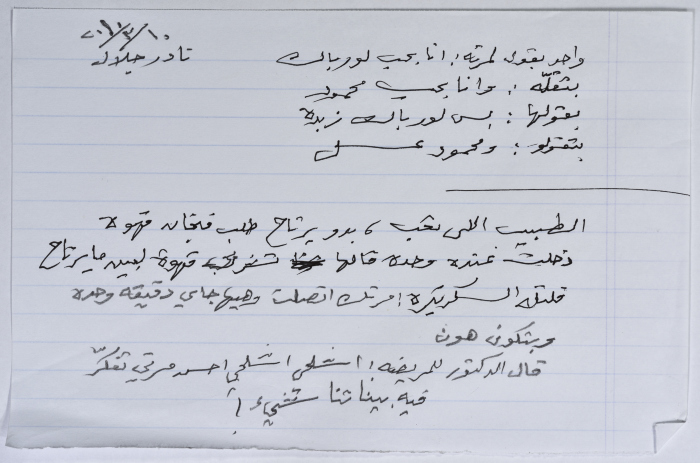 ٢٠١٠/٣/١٠
نادر جلال
واحد بقول لمرته: انا بحب لورباك
بتقلّه: وانا بحب محمود
بقولها: بس لورباك زبدة
بتقولو: ومحمود عسل
الطبيب اللي تعب، بدو يرتاح طلب فنجان قهوة
دخلت عنده وحده قالها نشرب قهوة لبين ما يرتاح
قلتله السكرتيرة: مرتك اتصلت وهيها جاي دقيقه وحده
وبتكون هون
قال الدكتور للمريضه: اشلحي اشلحي احسن مرتي تفكّر
فيه بيناتنا شيء!